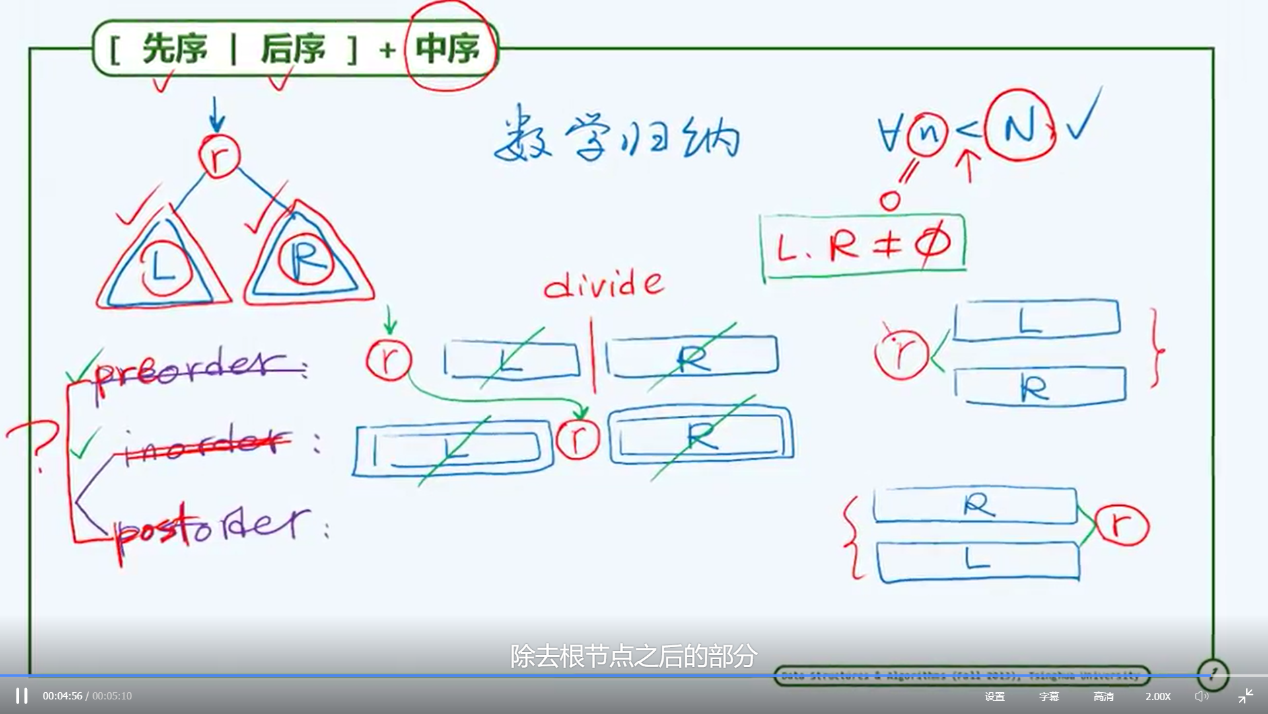 [ 先序 | 后序 ] + 中序
数学归纳
∀ n < N
r
0
L R
L. R ≠ ∅
divide
preorder : r L R
r L
R
? inorder : L r R
postorder :
R
L r
除去根节点之后的部分
Data Structures & Algorithms (Fall 2013), Tsinghua University
00:04:56 / 00:05:10 设置 字幕 高清 2.00X